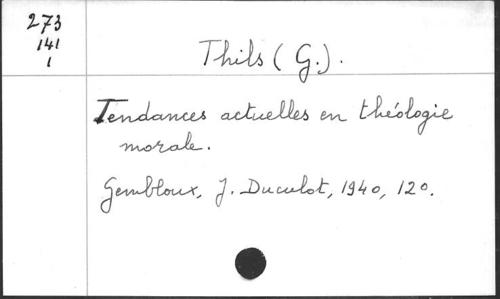 273
141
1
Thils (G.).
Tendances actuelles en théologie
morale.
Gembloux, J. Duculot, 1940, 12o.